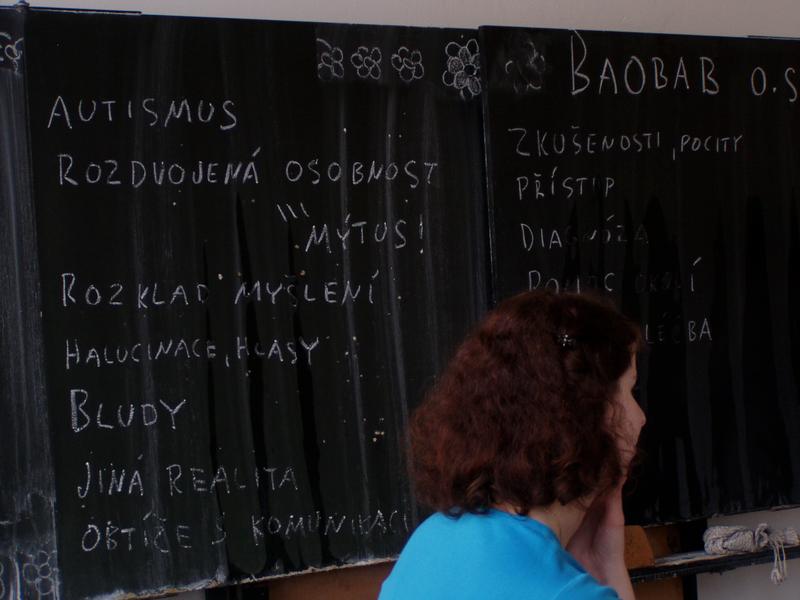 AUTISMUS
ROZDVOJENÁ OSOBNOST
MÝTUS!
ROZKLAD MYŠLENÍ
HALUCINACE, HLASY
BLUDY
JINÁ REALITA
OBTÍŽE S KOMUNIKACÍ
BAOBAB O.S
ZKUŠENOSTI, POCITY
PŘÍSTUP
DIAGNÓZA
POMOC OKOLÍ
LÉČBA